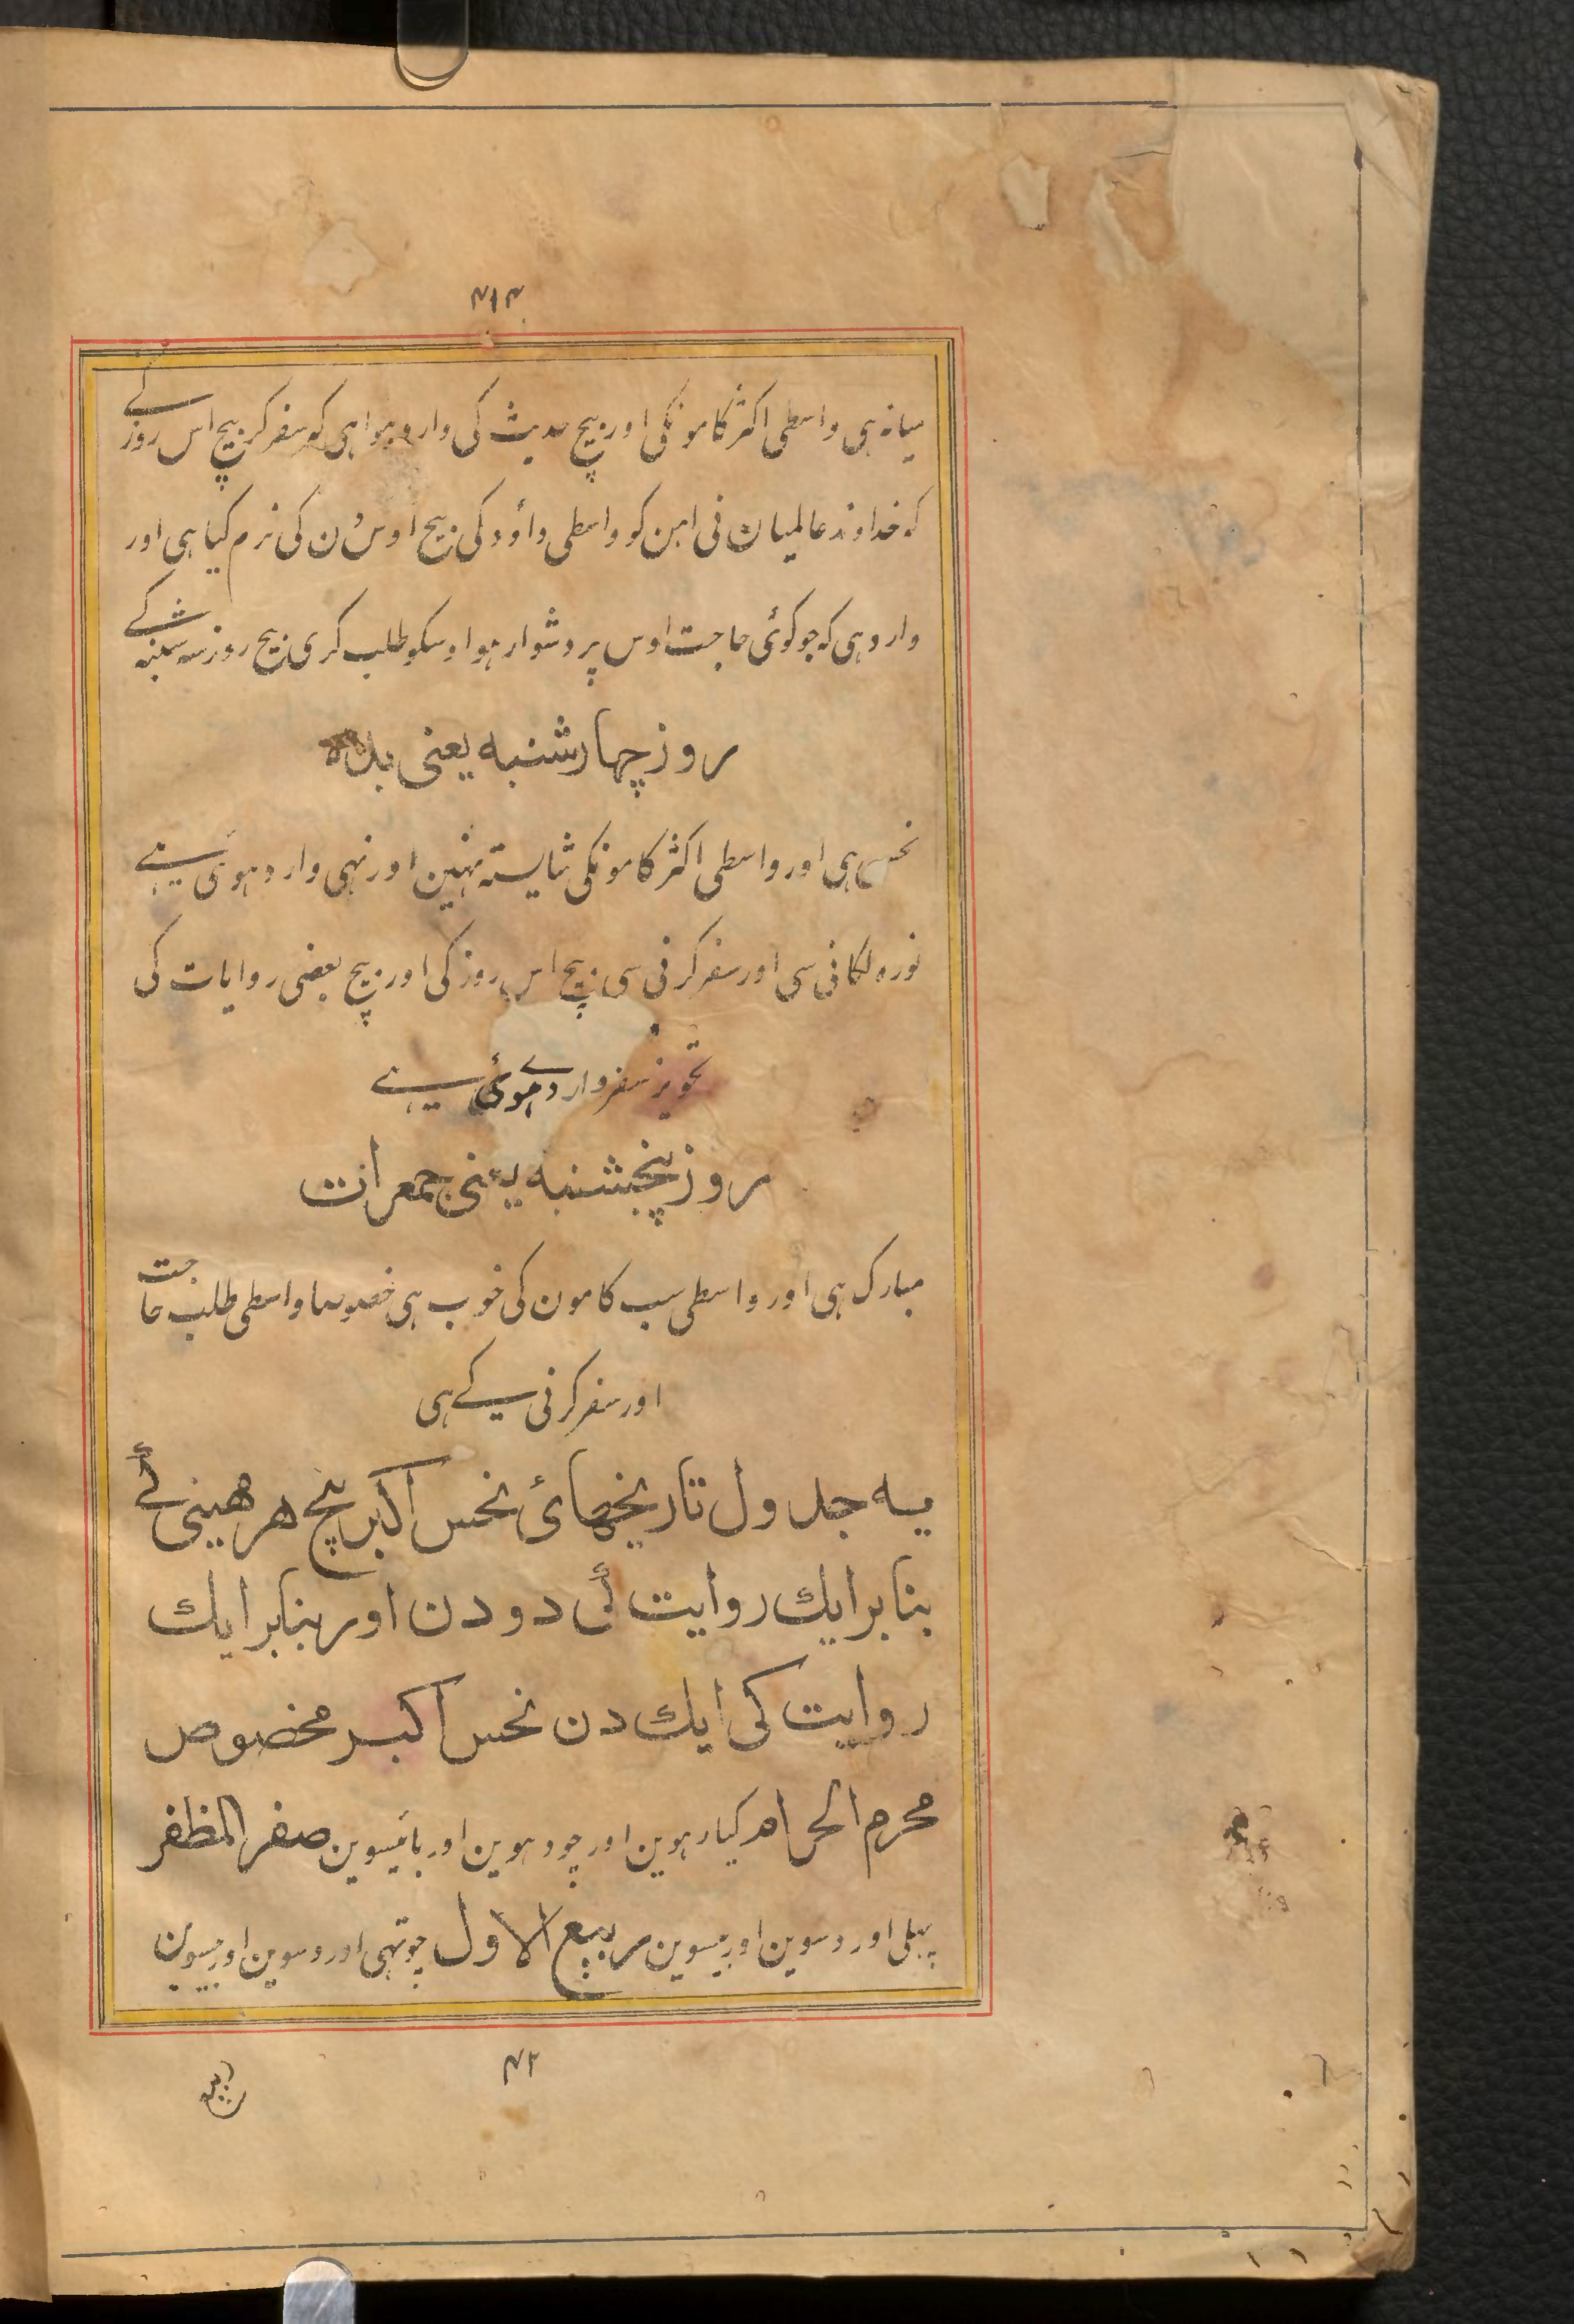 ۴۱۴
میانہ ہی واسطی اکثر کامونکی اور بیچ حدیث کی وارد ہوا ہی کہ سفر کر بیچ اس روز کے
کہ خداوند عالمیان نی اہن کو واسطی داؤد کی بیچ اوس دن کی نرم کیا ہی اور
وارد ہی کہ جو کوئی حاجت اوس پر دشوار ہو اوسکو طلب کری بیچ روز سہ شنبہ کے
روز چہار شنبہ یعنی بدہ
نحس ہی اور واسطی اکثر کامونکی شایستہ نہین اور نہی وارد ہوئی ہے
نورہ لگانی سی اور سفر کرنی سی بیچ اس روز کی اور بیچ بعضی روایات کی
تجویز سفر وارد ہوئی ہے
روز پنجشنبہ یعنی جمعرات
مبارک ہی اور واسطی سب کامون کی خوب ہی خصوصا واسطی طلب حاجت
اور سفر کرنی کے ہی
یہ جدول تاریخہائ نحس اکبر بیچ ہر مہینی کے
بنابر ایک روایت کی دو دن اور بنابر ایک
روایت کی ایک دن نحس اکبر مخصوص
محرم الحرام گیارہوین اور چودہوین اور بائیسوین صفر المظفر
پہلی اور دسوین اور بیسوین ربیع الاول چوتہی اور دسوین اور بیسوین
۴۲